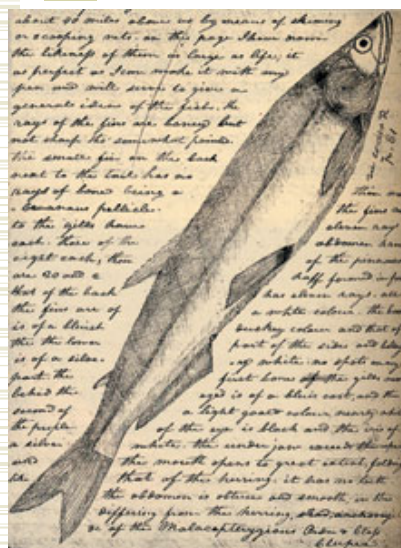 about 40 miles above us by means of skiming
or scooping nets. on this page I have drawn
the likeness of them as large as life; it
as perfect as I can make it with my
pen and will serve to give a
general idea of the fish. the
rays of the fins are boney but
not sharp tho' somewhat pointed.
the small fin on the back
next to the tail has no
rays of bone being a
branous pellicle.
to the gills have
each. those of the
eight each, those
are 20 and 2
that of the back
the fins are of
is of a bluish
the the lower
is of a silve-
part. the
behind the
second of
the purple
a silver
and
like
thin
the fins next
eleven rays
abdomen have
of the pinnovani
half formed in front
has eleven rays. all
a white colour. the back
duskey colour and that of
part of the sides and belley
-ey white. no spots on any
first bone of the gills next
eye is of a bluis cast, and the
a light goald colour, nearly white
of the eye is black and the iris of
white. the under jaw exceeds the uper
the mouth opens to great extent, folding
that of the herring. it has no teeth.
the abdomen is obtuse and smooth; in this
differing from the herring, shad, anchovey
&c of the Malacopterygious Order & Class
Clupea